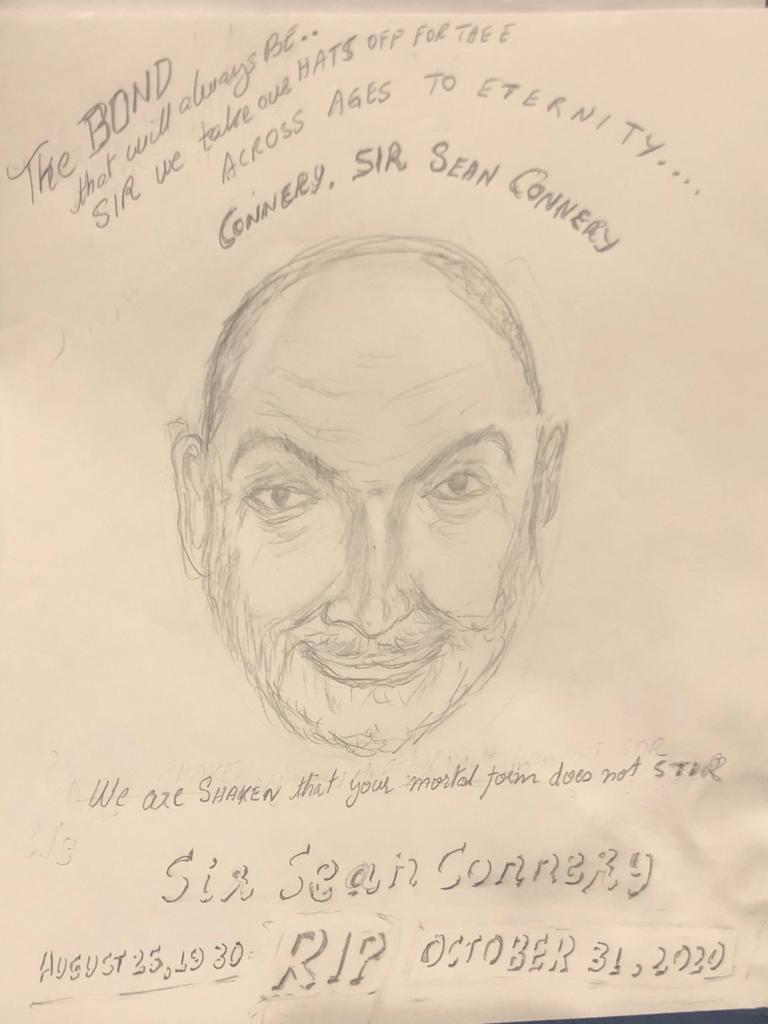 The BOND
that will always BE..
SIR we take our HATS OFF FOR THEE
ACROSS AGES TO ETERNITY....
CONNERY. SIR SEAN CONNERY
We are SHAKEN that your mortal form does not STIR
Sir Sean Connery
AUGUST 25, 1930 RIP OCTOBER 31, 2020